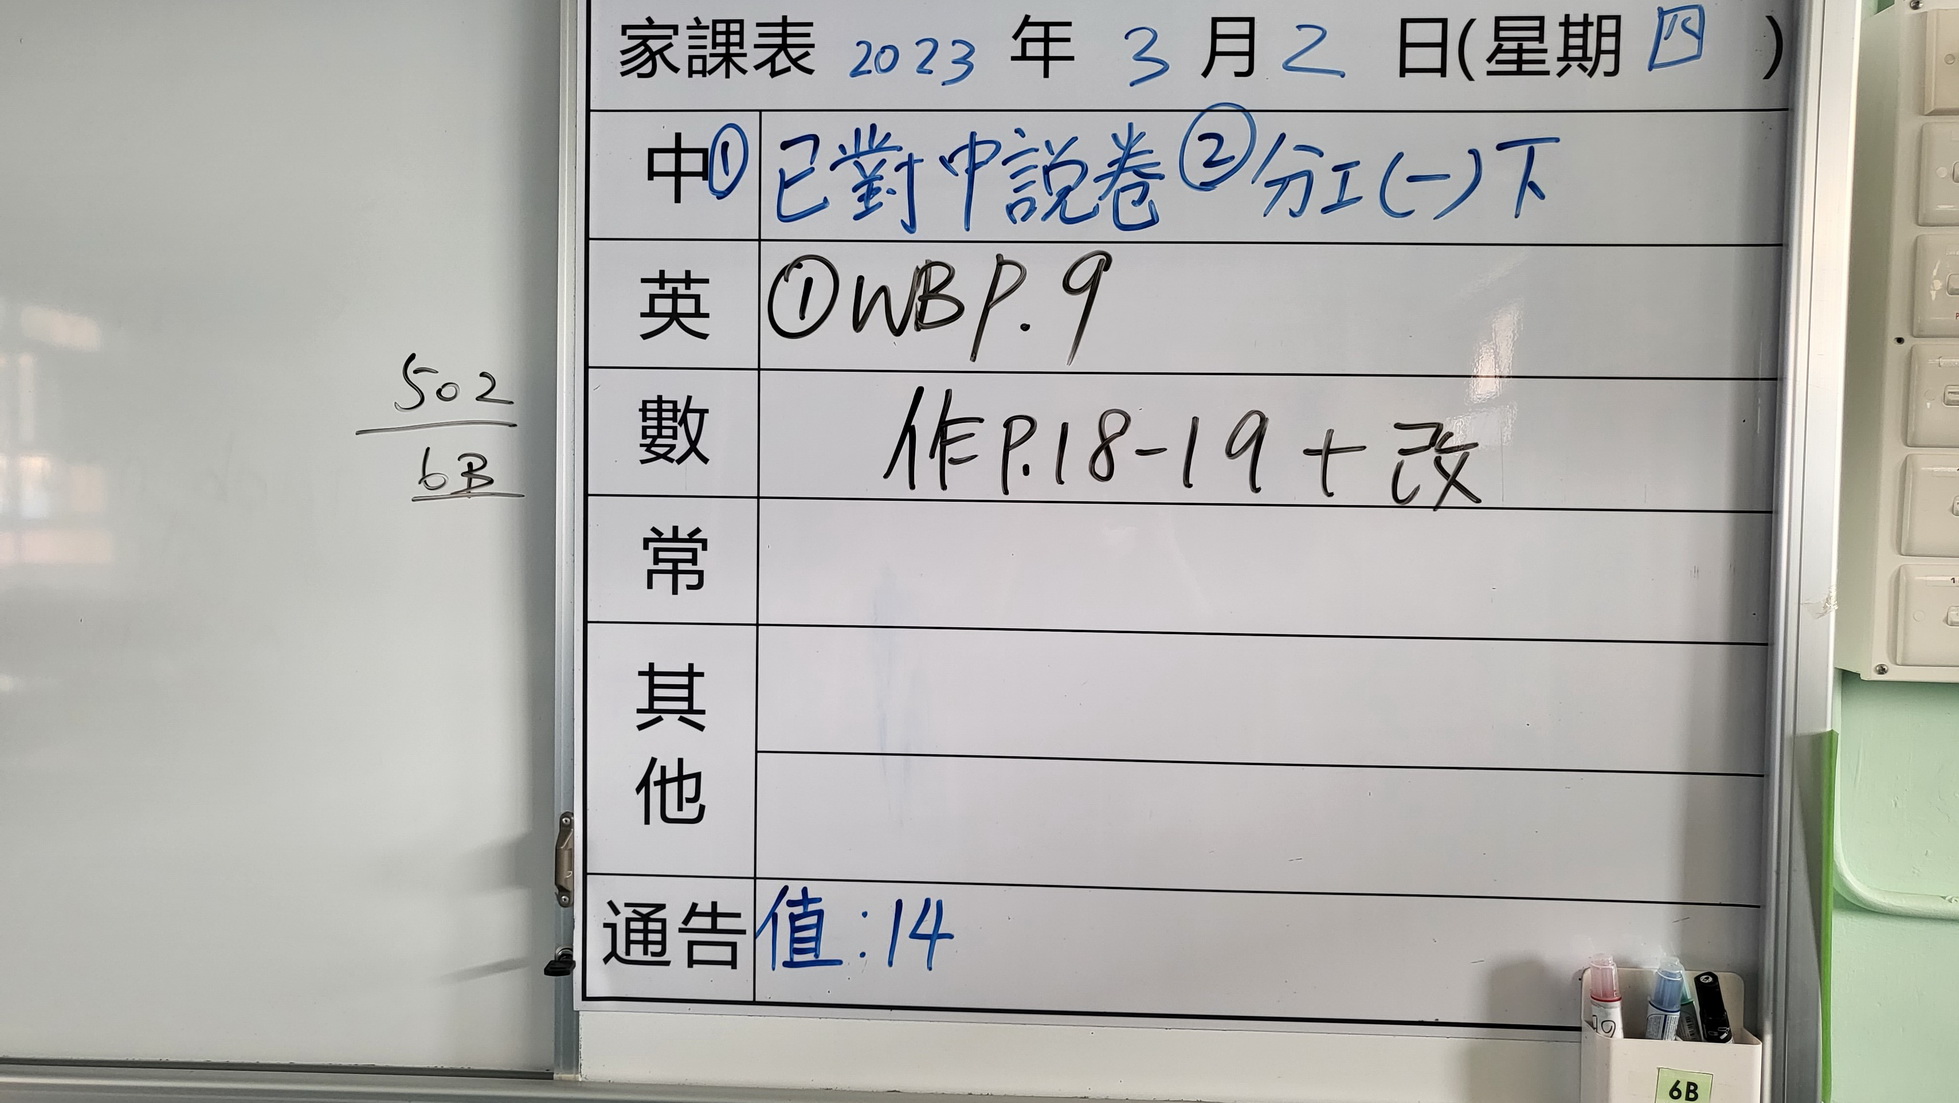 家課表 2023 年 3 月 2 日(星期 四 )
中 ① 已對中說卷 ② 分工(一)下
英 ① WB P.9
數 作P.18-19 + 改
常
其他
通告 值:14
502
6B
6B